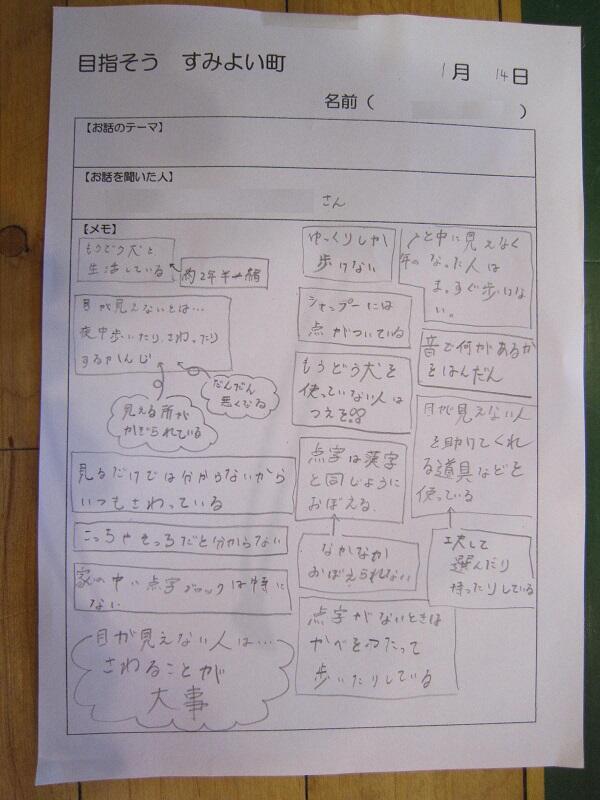 目指そう　すみよい町
1月　14日
名前（　　　　　）
【お話のテーマ】
【お話を聞いた人】
さん
【メモ】
もうどう犬と
生活している
約2年半一緒
目が見えないとは…
夜中歩いたり、さわったり
するかんじ
見える所が
かぎられている
だんだん
悪くなる
見るだけでは分からないから
いつもさわっている
こっちやそっちだと分からない
家の中に点字ブロックは特に
ない
目が見えない人は…
さわることが
大事
ゆっくりしか
歩けない
シャンプーには
点がついている
もうどう犬を
使っていない人は
つえを
点字は漢字
と同じように
おぼえる
なかなか
おぼえられない
点字がないときは
かべをつたって
歩いたりしている
と中に見えなく
なった人は
まっすぐ歩けな
い。
音で何があるか
をはんだん
目が見えない人
を助けてくれ
る道具などを
使っている
工夫して
選んだり
持ったりしている